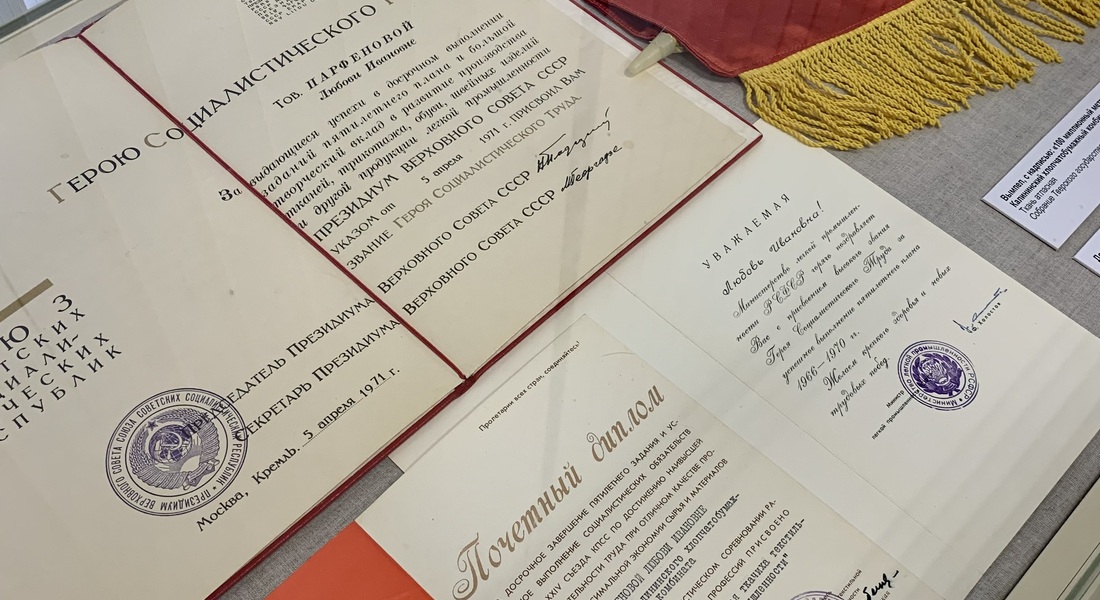 ГЕРОЮ СОЦИАЛИСТИЧЕСКОГО
Тов. ПАРФЕНОВОЙ
Любови Ивановне
За выдающиеся успехи в досрочном выполнении
заданий пятилетнего плана и большой
творческий вклад в развитие производства
тканей, трикотажа, обуви, швейных изделий
и другой продукции легкой промышленности
ПРЕЗИДИУМ ВЕРХОВНОГО СОВЕТА СССР
УКАЗОМ от 5 апреля 1971 г. ПРИСВОИЛ ВАМ
ЗВАНИЕ ГЕРОЯ СОЦИАЛИСТИЧЕСКОГО ТРУДА.
ПРЕДСЕДАТЕЛЬ ПРЕЗИДИУМА ВЕРХОВНОГО СОВЕТА СССР
СЕКРЕТАРЬ ПРЕЗИДИУМА ВЕРХОВНОГО СОВЕТА СССР
Москва, Кремль. 5 апреля 1971 г.
УВАЖАЕМАЯ
Любовь Ивановна!
Министерство легкой промышлен-
ности РСФСР горячо поздравляет
Вас с присвоением высокого звания
Героя Социалистического Труда за
успешное выполнение пятилетнего плана
1966—1970 гг.
Желаем крепкого здоровья и новых
трудовых побед.
Министр
легкой промышленности
Пролетарии всех стран, соединяйтесь!
Почетный диплом
ДОСРОЧНОЕ ЗАВЕРШЕНИЕ ПЯТИЛЕТНЕГО ЗАДАНИЯ И УС-
ВЫПОЛНЕНИЕ СОЦИАЛИСТИЧЕСКИХ ОБЯЗАТЕЛЬСТВ
XXIV СЪЕЗДА КПСС ПО ДОСТИЖЕНИЮ НАИВЫСШЕЙ
ТРУДА ПРИ ОТЛИЧНОМ КАЧЕСТВЕ ПРО-
ЭКОНОМИИ СЫРЬЯ И МАТЕРИАЛОВ
ЛЮБОВИ ИВАНОВНЕ
хлопчатобумаж-
комбината
СОРЕВНОВАНИИ РА-
ПРОФЕССИЙ ПРИСВОЕНО
ткачиха текстиль-
Вымпел, с надписью: «100 миллионный
Калининский хлопчатобумажный
Ткань атласная
Собрание Тверского